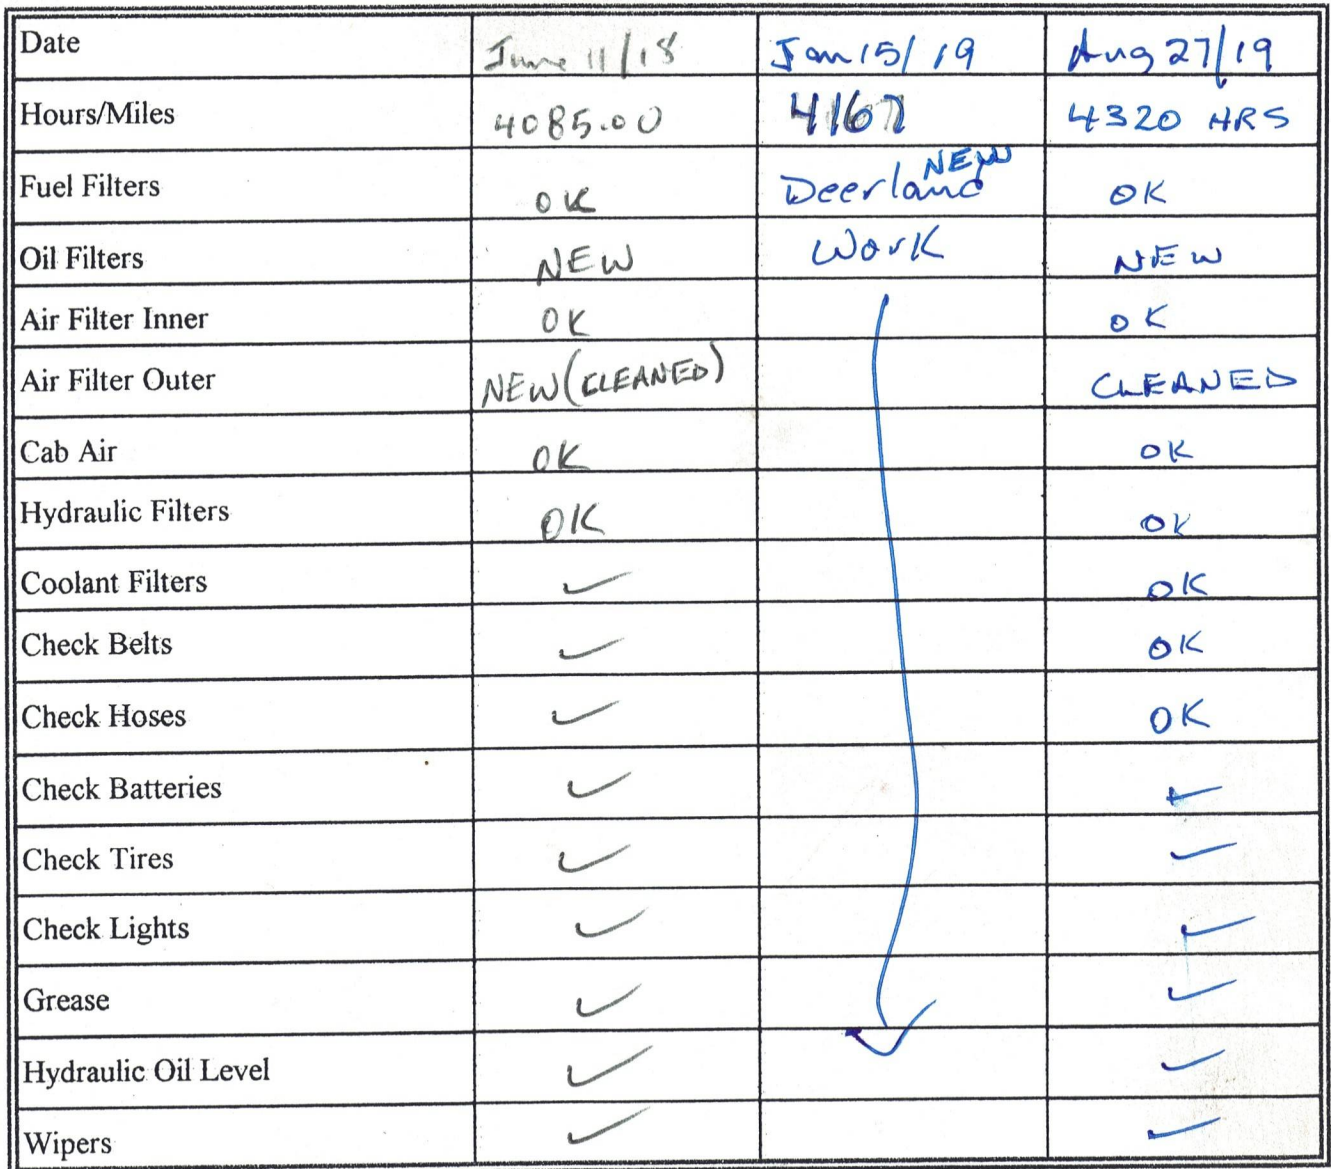 Date June 11/18 Jan 15/19 Aug 27/19
Hours/Miles 4085.00 4167 4320 HRS
Fuel Filters OK Deerland NEW OK
Oil Filters NEW Work NEW
Air Filter Inner OK OK
Air Filter Outer NEW (CLEANED) CLEANED
Cab Air OK OK
Hydraulic Filters OK OK
Coolant Filters ✓ OK
Check Belts ✓ OK
Check Hoses ✓ OK
Check Batteries ✓ ✓
Check Tires ✓ ✓
Check Lights ✓ ✓
Grease ✓ ✓
Hydraulic Oil Level ✓ ✓
Wipers ✓ ✓